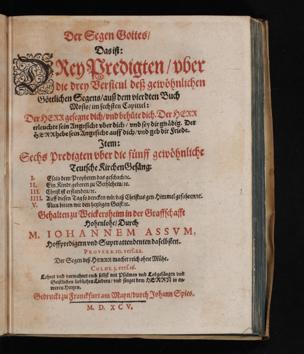 Der Segen Gottes/
Das ist:
DRey Predigten/ vber
die drey Versicul deß gewöhnlichen
Göttlichen Segens/ auß dem vierdten Buch
Mosis/ im sechsten Capitul:
Der HERR gesegne dich/ vnd behüte dich. Der HERR
erleuchte sein Angesicht vber dich/ vnd sey dir gnädig. Der
HERR hebe sein Angesicht auff dich/ vnd geb dir Friede.
Item:
Sechs Predigten vber die fünff gewöhnliche
Teutsche KirchenGesäng:
I. Esaia dem Propheten das geschach/rc.
II. Ein Kindt geboren zu Bethlehem/rc.
III. Christ ist erstanden/rc.
IIII. Auff diesen Tag so dencken wir daß Christus gen Himmel gefahren/rc.
V. Nun bitten wir den heyligen Geist/rc.
Gehalten zu Weickersheim in der Graffschafft
Hohenlohe/ Durch
M. IOHANNEM ASSVM,
Hoffpredigern vnd Superattendenten daselbsten.
PROVERB. 10. vers. 22.
Der Segen deß HERRN machet reich ohne Mühe.
COLOS. 3. vers. 16.
Lehret vnd vermahnet euch selbst mit Psalmen vnd Lobgesängen vnd
Geistlichen lieblichen Liedern/ vnd singet dem HERRN in ewren Hertzen.
Gedruckt zu Franckfurt am Mayn/ durch Johann Spies.
M. D. XCV.